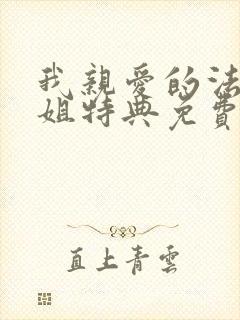 我親愛的法
姐特典免費
直上青雲